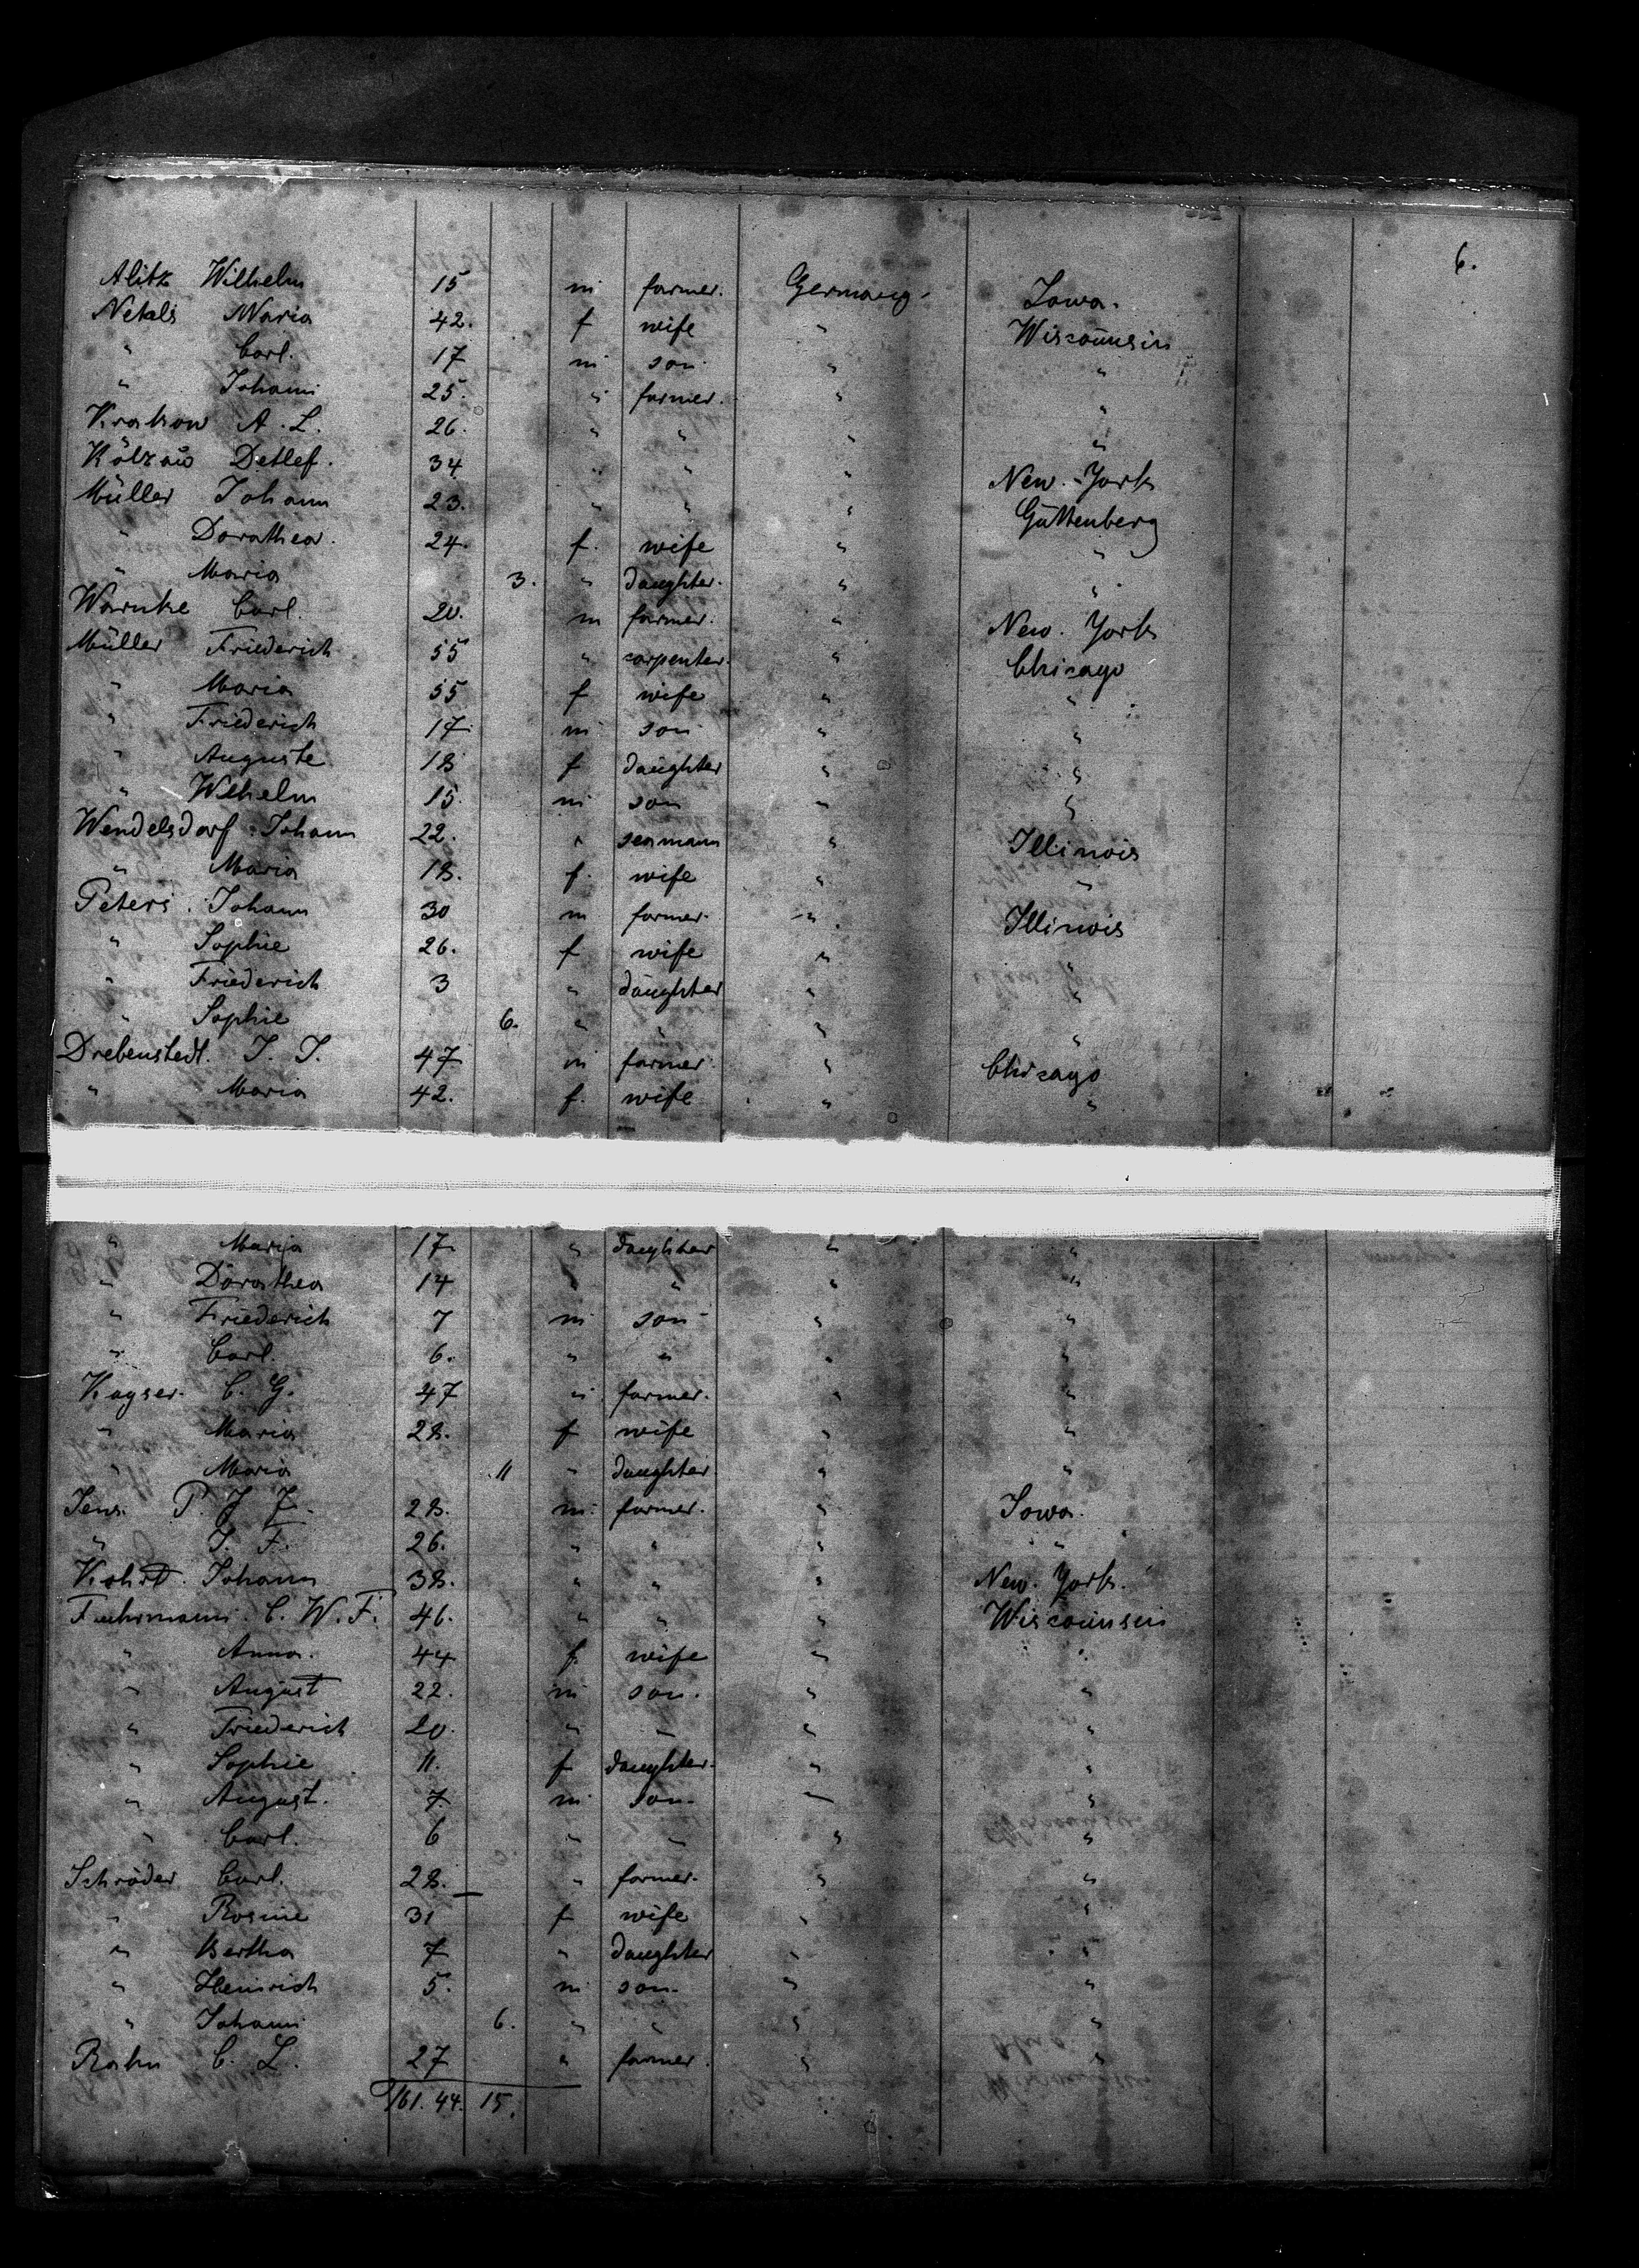 6.
Alitz Wilhelm 15 m farmer. Germany. Iowa.
Netals Maria 42. f wife " Wisconnsin
" Carl. 17 m son " "
" Johann 25. " farmer. " "
Krakow A. L. 26. " " " "
Kölzau Detlef. 34 " " " New-York
Müller Johann 23. " " " Guttenberg
" Dorathea. 24. f. wife " "
" Maria 3. " daughter. " "
Warnke Carl. 20. m farmer. " New. York
Müller Friederich 55 " carpenter. " Chicago
" Maria 55 f wife " "
" Friederich 17. m son " "
" Auguste 18 f daughter " "
" Wilhelm 15. m son " "
Wendelsdorf Johann 22. " seamann " Illinois
" Maria 18. f. wife " "
Peters. Johann 30 m farmer. " Illinois
" Sophie 26. f wife " "
" Friederich 3 " daughter " "
" Sophie 6. " " " "
Drebenstedt. J. J. 47 m farmer. " Chicago
" Maria 42. f. wife " "
" Marja 17 " daughter " "
" Dorathea 14 " " " "
" Friederich 7 m son " "
" Carl. 6. " " " "
Kayser. C. G. 47 " farmer. " "
" Maria 28. f wife " "
" Maria 11 " daughter. " "
Jens. P. J. J. 28. m. farmer. " Iowa.
" J. F. 26. " " " "
Kohrt. Johann 38. " " " New. York.
Fuhrmann. C. W. F. 46. " " " Wisconnsin
" Anna. 44 f. wife " "
" August 22. m son. " "
" Friederich 20. " " " "
" Sophie 11. f daughter. " "
" August. 7. m son. " "
" Carl. 6 " " " "
Schröder Carl. 28. " farmer. " "
" Rosine 31 f wife " "
" Bertha 7 " daughter " "
" Heinrich 5. m son. " "
" Johann 6. " " " "
Rahn C. L. 27 " farmer. " "
161. 44. 15.